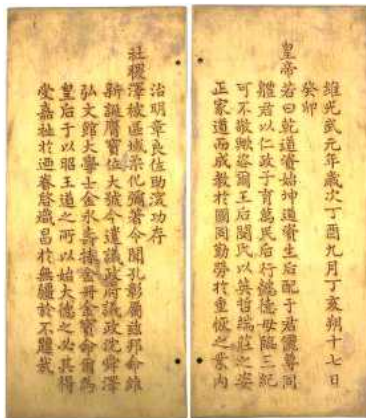 維光武元年歲次丁酉九月丁亥朔十七日
癸卯
皇帝若曰乾道資始坤道資生后配于君儷尊同
體君以仁政子育萬民后行懿德母臨三紀
可不敬歟咨爾王后閔氏以英哲端莊之姿
正家道而成敎於國同勤勞於重恢之業內
治明章良佐助功存
社稷澤被區域柔化彌著令聞孔彰玆邦命維
新誕膺寶位大號今遣議政府議政沈舜澤
弘文館大學士金永壽授金冊金寶命爾爲
皇后于以昭王道之所以始大德之必其得
受嘉祉於迺眷啓熾昌於無疆於不韙哉